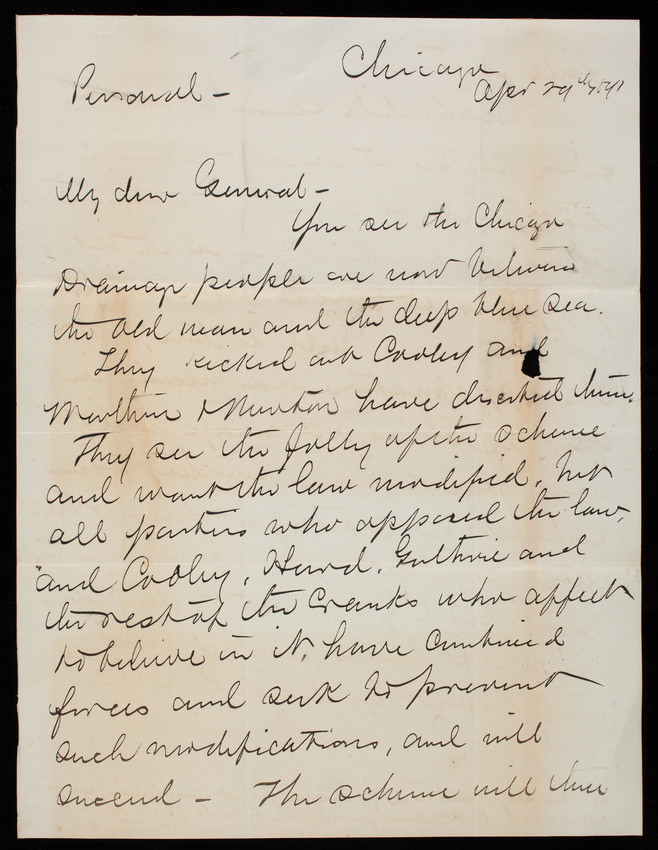 Chicago
Personal - Apr 29th 1891
My dear General -
You see the Chicago
Drainage people are now between
the old man and the deep blue sea.
They kicked out Cooley and
Worthen & Newton have deserted them.
They see the folly of the scheme
and want the law modified, but
all parties who opposed the law,
and Cooley, Hurd, Guthrie and
the rest of the cranks who affect
to believe in it, have combined
forces and seek to prevent
such modifications, and will
succeed - The scheme will then